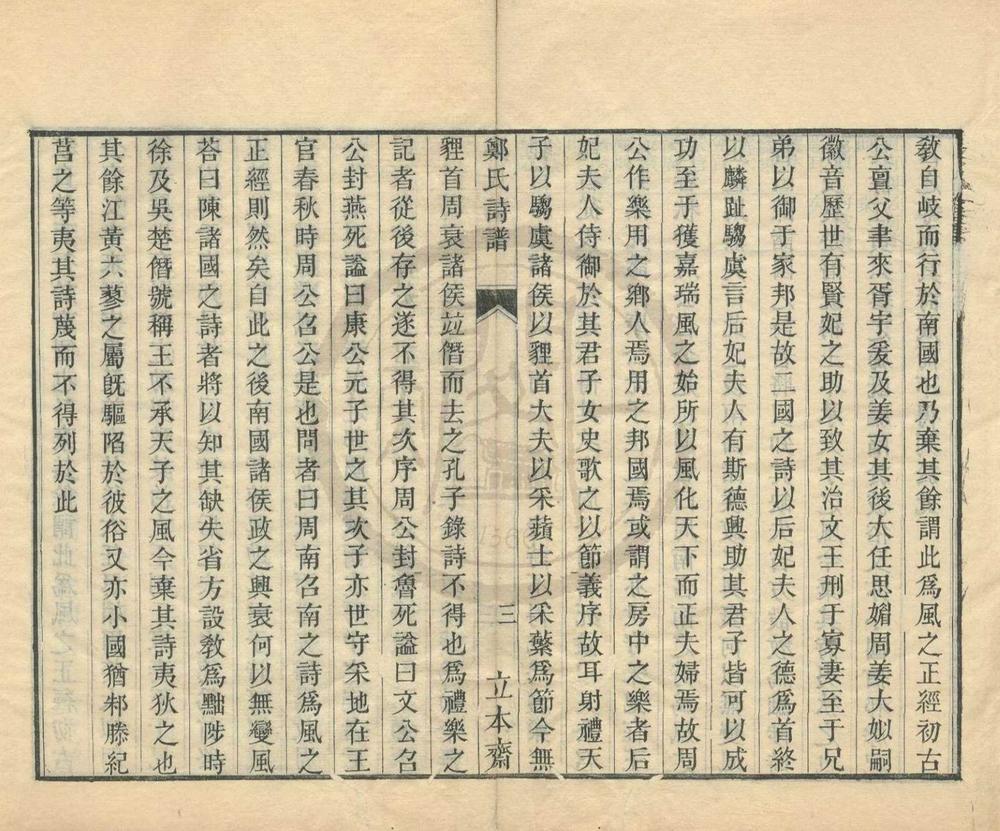 敎自岐而行於南國也乃棄其餘謂此爲風之正經初古
公亶父聿來胥宇爰及姜女其後大任思媚周姜大姒嗣
徽音歷世有賢妃之助以致其治文王刑于寡妻至于兄
弟以御于家邦是故二國之詩以后妃夫人之德爲首終
以麟趾騶虞言后妃夫人有斯德興助其君子皆可以成
功至于獲嘉瑞風之始所以風化天下而正夫婦焉故周
公作樂用之鄉人焉用之邦國焉或謂之房中之樂者后
妃夫人侍御於其君子女史歌之以節義序故耳射禮天
子以騶虞諸侯以貍首大夫以采蘋士以采蘩爲節今無
鄭氏詩譜 三 立本齋
貍首周衰諸侯竝僭而去之孔子錄詩不得也爲禮樂之
記者從後存之遂不得其次序周公封魯死謚曰文公召
公封燕死謚曰康公元子世之其次子亦世守采地在王
官春秋時周公召公是也問者曰周南召南之詩爲風之
正經則然矣自此之後南國諸侯政之興衰何以無變風
荅曰陳諸國之詩者將以知其缺失省方設敎爲黜陟時
徐及吳楚僭號稱王不承天子之風今棄其詩夷狄之也
其餘江黃六蓼之屬旣驅陷於彼俗又亦小國猶邾滕紀
莒之等夷其詩蔑而不得列於此